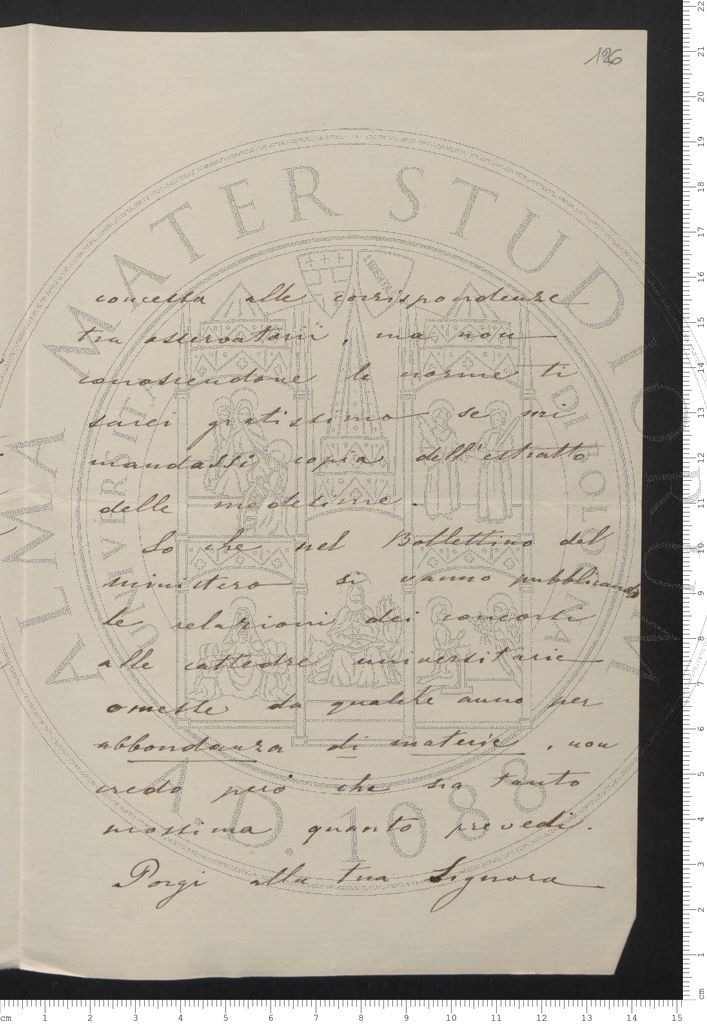 126
concessa alle corrispondenze
tra osservatorii, ma non
conoscendone le norme ti
sarei gratissimo se mi
mandassi copia dell'estratto
delle medesime.
So che nel Bollettino del
ministero si vanno pubblicando
le relazioni dei concorsi
alle cattedre universitarie
omesse da qualche anno per
abbondanza di materie, non
credo però che sia tanto
prossima quanto prevedi.
Porgi alla tua Signora
ALMA MATER STUDIORUM
A.D. 1088